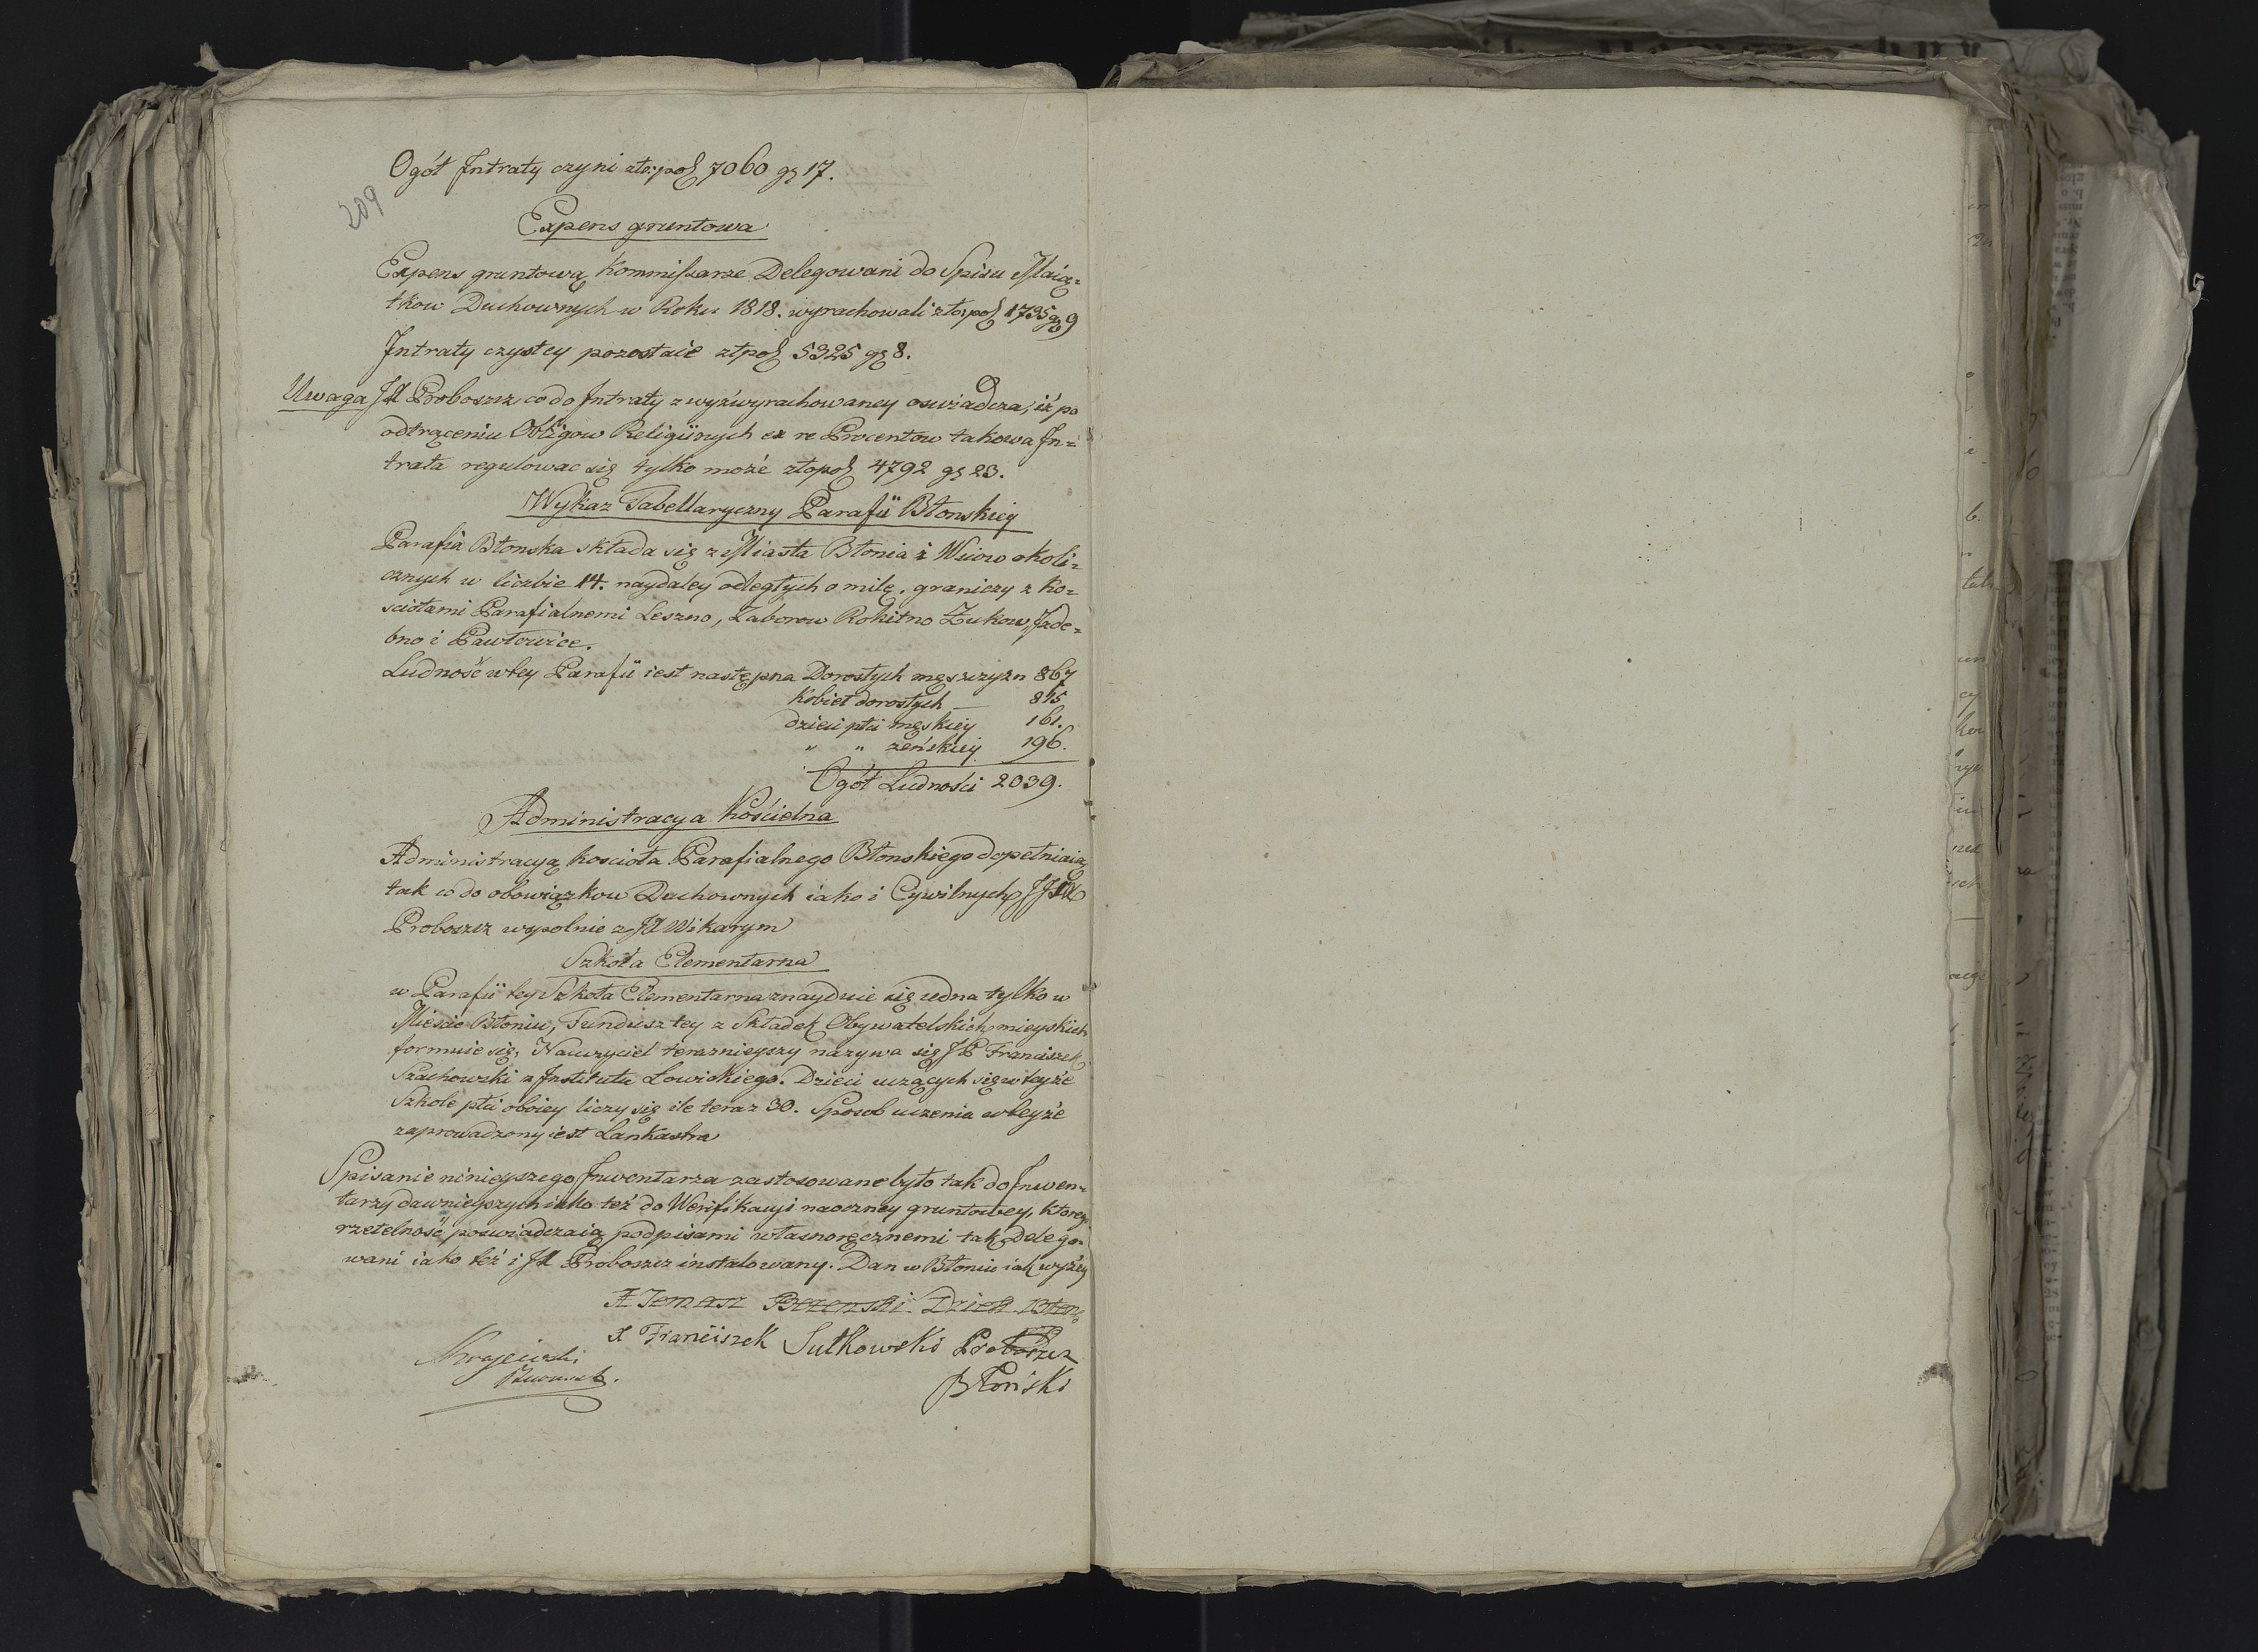 Ogół Jntraty czyni złt: pol 7060 gr 17.
209
Expens gruntowa
Expens gruntową Kommissarze Delegowani do Spisu Maią=
tkow Duchownych w Roku 1818. wyrachowali złt: pol 1735 gr 9
Jntraty czystey pozostaie złt pol 5325 gr 8.
Uwaga JX Proboszcz co do Jntraty zwyż wyrachowaney oswiadcza, iż po
odtrąceniu Obligow Religiinych ex re Procentow takowa Jn=
trata regulowac się tylko może złt pol 4792 gr 23.
Wykaz Tabellaryczny Parafii Błonskiey
Parafia Błonska składa się z Miasta Błonia i Wsiow okoli=
cznych w liczbie 14. naydaley odległych o milę. graniczy z Ko=
sciołami Parafialnemi Leszno, Zaborow Rokitno Żukow, Jzde=
bno i Pawłowice.
Ludność w tey Parafii iest następna Dorosłych męszczyzn 867
Kobiet dorosłych — 815
dzieci płci męskiey 161.
" " żeńskiey 196.
Ogół Ludności 2039.
Administracya Kościelna
Administracyą kościoła Parafialnego Błonskiego dopełniaią
tak co do obowiązkow Duchownych iako i Cywilnych JJXX
Proboszcz wspolnie z JX Wikarym
Szkoła Elementarna
w Parafii tey Szkoła Elementarna znayduie się iedna tylko w
Mieście Błoniu, Fundusz tey z Składek Obywatelskich mieyskich
formuie się, Nauczyciel teraznieyszy nazywa się JP Franciszek
Szachowski z Jnstitutu Lowickiego. Dzieci uczących się w teyże
Szkole płci oboiey liczy się ile teraz 30. Sposob uczenia w teyże
zaprowadzony iest Lankastra
Spisanie ninieyszego Jnwentarza zastosowane było tak do Jnwen=
tarzy dawnieyszych iako też do Weryfikacyi naoczney gruntowey, ktorey
rzetelność poswiadczaią podpisami własnoręcznemi tak Delego=
wani iako też i JX Proboszcz instalowany. Dan w Błoniu iak wyżey
X Tomasz Dziek Błoń
X Franciszek Sutkowski Proboszcz
Błoński